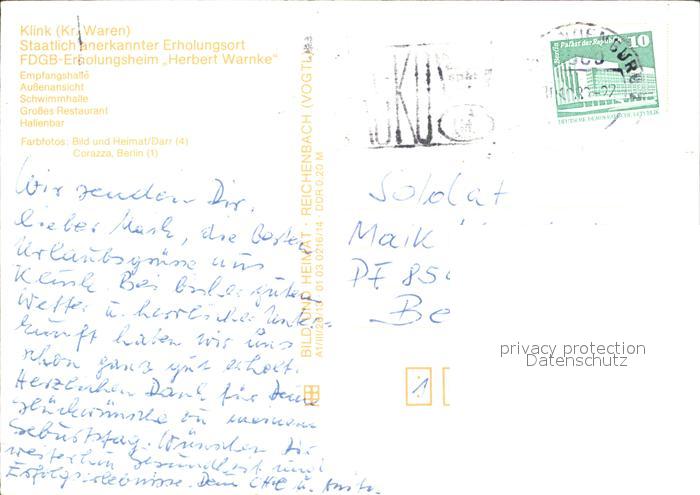 Klink (Kr. Waren)
Staatlich anerkannter Erholungsort
FDGB-Erholungsheim „Herbert Warnke"
Empfangshalle
Außenansicht
Schwimmhalle
Großes Restaurant
Hallenbar
Farbfotos: Bild und Heimat/Darr (4)
Corazza, Berlin (1)
Wir senden Dir,
lieber Maik, die besten
Urlaubsgrüsse aus
Klink. Bei bisher gutem
Wetter u. herrlicher Unter-
kunft haben wir uns
schon ganz gut erholt.
Herzlichen Dank für Deine
Glückwünsche zu meinem
Geburtstag. Wünschen Dir
weiterhin Gesundheit und
Erfolgserlebnisse. Dein u.
BILD UND HEIMAT · REICHENBACH (VOGTL
A1/III/26/13 01 03 0216/14 · DDR 0,20 M
Berlin Palast der Republik
10
DEUTSCHE DEMOKRATISCHE REPUBLIK
Soldat
Maik
PF 85
Be
privacy protection
Datenschutz